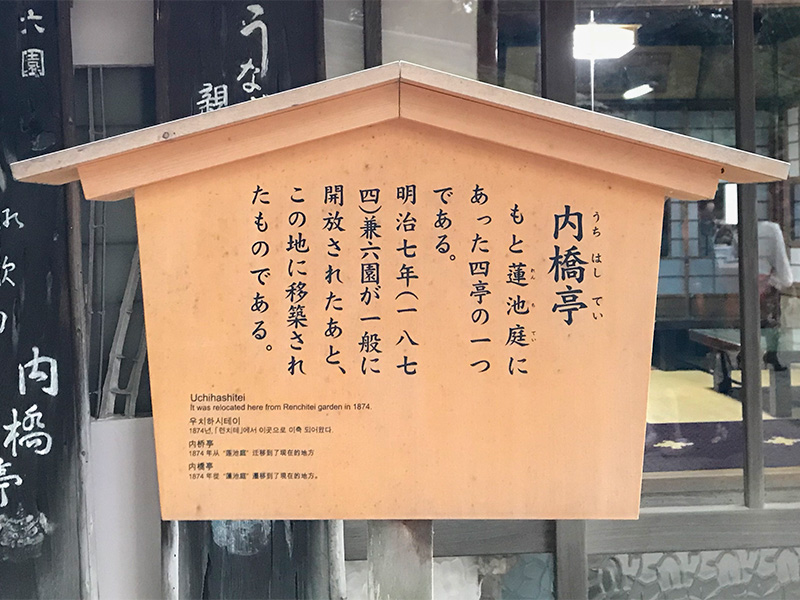 内橋亭
うち はし てい
もと蓮池庭に
れん ち てい
あった四亭の一つ
である。
明治七年(一八七
四)兼六園が一般に
開放されたあと、
この地に移築され
たものである。
Uchihashitei
It was relocated here from Renchitei garden in 1874.
우치하시테이
1874년, 「렌치테」에서 이곳으로 이축 되어왔다.
内桥亭
1874 年从 “莲池庭” 迁移到了现在的地方
内橋亭
1874 年從 “蓮池庭” 遷移到了現在的地方。
六園
うな
親
内橋亭